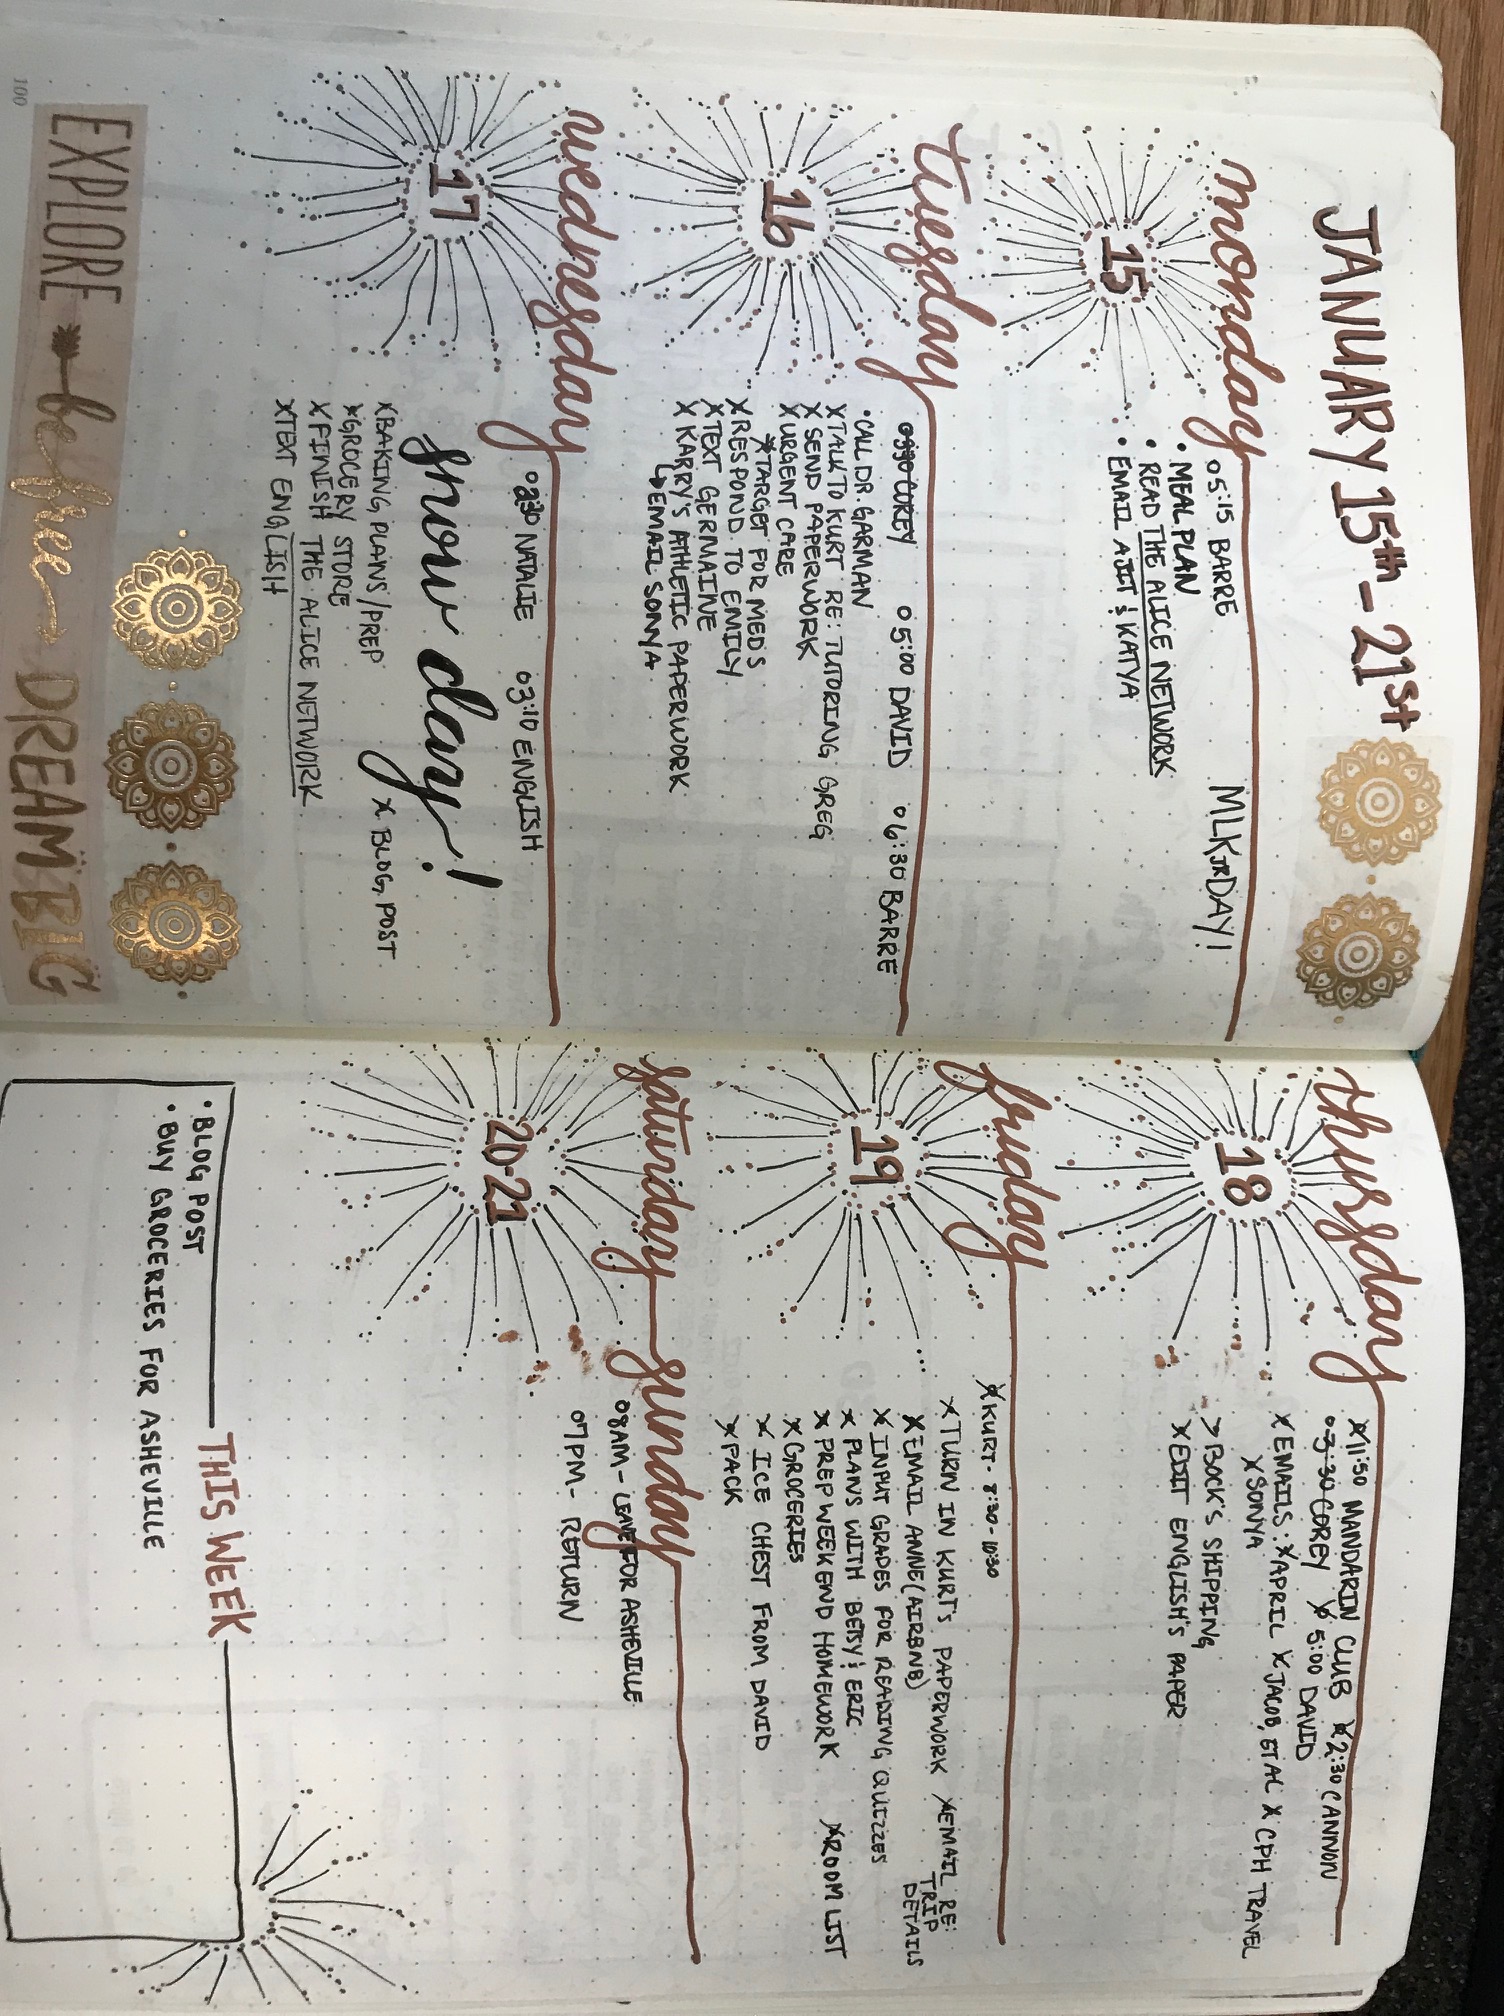 JANUARY 15th - 21st
monday
15
o 5:15 BARRE
MLK JR DAY!
• MEAL PLAN
• READ THE ALICE NETWORK
• EMAIL AJIT & KATYA
tuesday
16
COREY o 5:00 DAVID o 6:30 BARRE
• CALL DR. GARMAN
X TALK TO KURT RE: TUTORING GREG
X SEND PAPERWORK
X URGENT CARE
X TARGET FOR MEDS
X RESPOND TO EMILY
X TEXT GERMAINE
X KARRY'S ATHLETIC PAPERWORK
↳ EMAIL SONYA
wednesday
17
o 2:30 NATALIE o 3:10 ENGLISH
snow day!
X BAKING PLANS/PREP X BLOG POST
X GROCERY STORE
X FINISH THE ALICE NETWORK
X TEXT ENGLISH
EXPLORE be free DREAM BIG
100
thursday
18
X 11:50 MANDARIN CLUB X 2:30 CANNON
o 3:30 COREY X 5:00 DAVID
X EMAILS: X APRIL X JACOB, ET AL X CPH TRAVEL
X SONYA
> BOCK'S SHIPPING
X EDIT ENGLISH'S PAPER
friday
19
X KURT - 8:30 - 10:30
X TURN IN KURT'S PAPERWORK X EMAIL RE: TRIP DETAILS
X EMAIL ANNE (AIRBNB)
X INPUT GRADES FOR READING QUIZZES
X PLANS WITH BETSY & ERIC
X PREP WEEKEND HOMEWORK X ROOM LIST
X GROCERIES
X ICE CHEST FROM DAVID
X PACK
saturday sunday
20-21
o 8AM - LEAVE FOR ASHEVILLE
o 7PM - RETURN
THIS WEEK
• BLOG POST
• BUY GROCERIES FOR ASHEVILLE